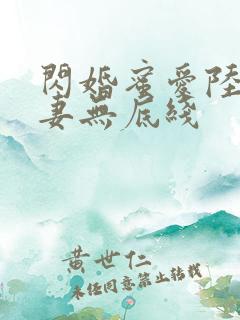 閃婚蜜愛陸
妻無底綫
黄世仁
未經同意禁止轉載